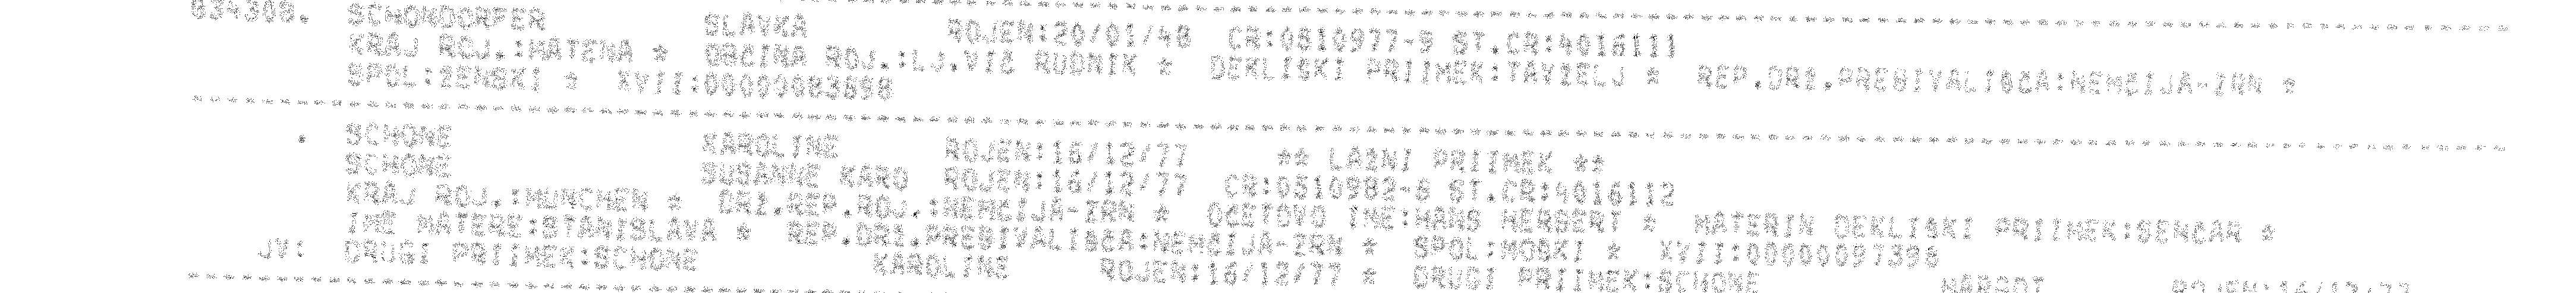 834308. SCHONDORFER SLAVKA ROJEN:20/01/48 CR:0810977-9 ST.CR:4016111
KRAJ ROJ.:MATENA * OBCINA ROJ.:LJ.VIC RUDNIK * DEKLISKI PRIIMEK:TAVZELJ * REP.DRZ.PREBIVALISCA:NEMCIJA-ZRN *
SPOL:ZENSKI * XVII:00099083698
. SCHONE KAROLINE ROJEN:16/12/77 ** LAZNI PRIIMEK **
SCHONE SUSANNE KARO ROJEN:16/12/77 CR:0510982-8 ST.CR:4016112
KRAJ ROJ.:MUNCHEN * DRZ.REP.ROJ.:NEMCIJA-ZRN * OCETOVO IME:HANS HERBERT * MATERIN DEKLISKI PRIIMEK:SENCAR *
IME MATERE:STANISLAVA * REP.DRZ.PREBIVALISCA:NEMCIJA-ZRN * SPOL:MOSKI * XVII:00000097398
JV: DRUGI PRIIMEK:SCHONE KAROLINE ROJEN:16/12/77 * DRUGI PRIIMEK:SCHONE MARGOT ROJEN:16/12/77